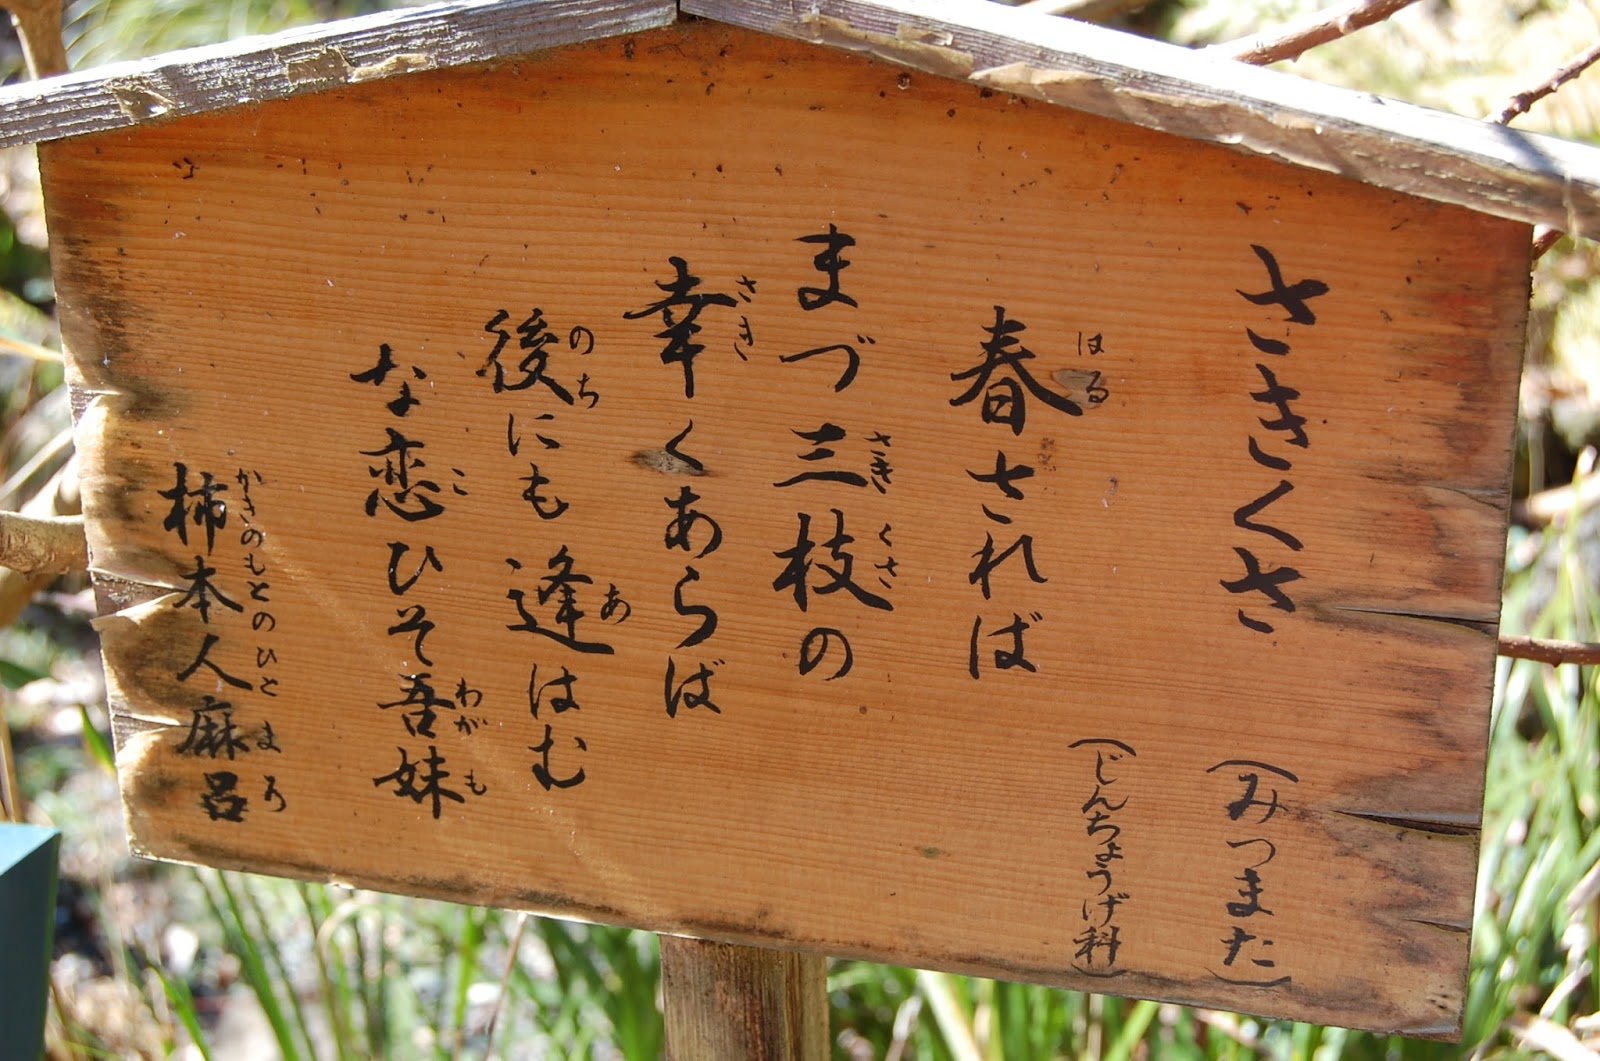 さきくさ
(みつまた)
(じんちょうげ科)
春されば
はる
まづ三枝の
さきくさ
幸くあらば
さき
後にも逢はむ
のち
あ
な恋ひそ吾妹
こ
わがも
柿本人麻呂
かきのもとのひとまろ